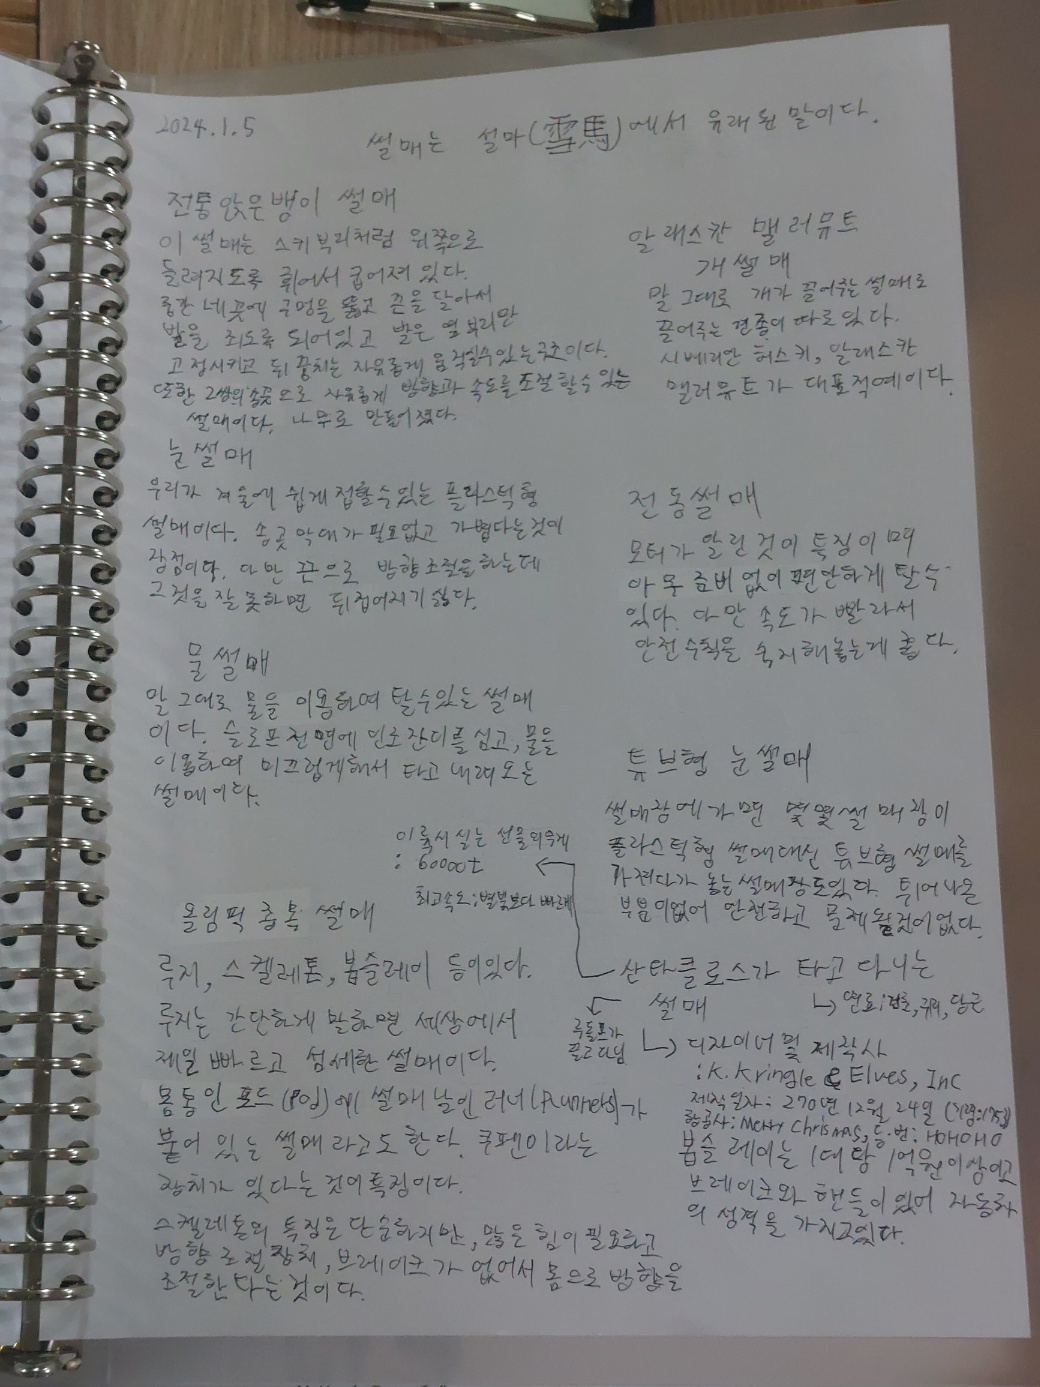 2024.1.5
썰매는 설마(雪馬)에서 유래된 말이다.
전통 앉은뱅이 썰매
이 썰매는 스키부리처럼 위쪽으로
들려지도록 휘어서 굽어져 있다.
중간 네곳에 구멍을 뚫고 끈을 달아서
발을 죄도록 되어있고 발은 앞부리만
고정시키고 뒤꿈치는 자유롭게 움직일수있는구조이다.
또한 2쌍의송곳으로 자유롭게 방향과 속도를 조절할수있는
썰매이다. 나무로 만들어졌다.
눈썰매
우리가 겨울에 쉽게 접할수있는 플라스틱형
썰매이다. 송곳막대가필요없고 가볍다는것이
장점이다. 다만 끈으로 방향조절을하는데
그것을잘못하면 뒤집어지기쉽다.
물썰매
말 그대로 물을 이용하여 탈수있는 썰매
이다. 슬로프전면에 인조잔디를 심고, 물을
이용하여 미끄럽게해서 타고 내려오는
썰매이다.
이륙시 싣는 선물의무게
: 60000t
최고속도: 별빛보다 빠르게
올림픽 종목 썰매
루지, 스켈레톤, 봅슬레이 등이있다.
루지는 간단하게 말하면 세상에서
제일 빠르고 섬세한 썰매이다.
몸통인 포드(Pod)에 썰매날인 러너(Runners)가
붙어 있는 썰매라고도 한다. 쿠펜이라는
장치가 있다는 것이특징이다.
스켈레톤의 특징은 단순하지만, 많은 힘이 필요하고
방향 조절 장치, 브레이크가 없어서 몸으로 방향을
조절한다는 것이다.
알래스칸 맬러뮤트
개썰매
말 그대로 개가 끌어주는 썰매로
끌어주는 견종이 따로있다.
시베리안 허스키, 알래스칸
맬러뮤트가 대표적예이다.
전동썰매
모터가 달린것이 특징이며
아무 준비없이 편안하게 탈수
있다. 다만 속도가 빨라서
안전수칙을 숙지해놓는게 좋다.
튜브형 눈썰매
썰매장에가면 몇몇썰매장이
플라스틱형 썰매대신 튜브형 썰매를
가져다가 놓는썰매장도있다. 튀어나온
부분이없어 안전하고 문제될것이없다.
산타클로스가 타고 다니는
썰매
연료: 건초, 귀리, 당근
루돌프가
끌고다님
디자이너 및 제작사
: K. Kringle & Elves, Inc
제작일자: 270년 12월 24일
항공사: Merry Chrismas, 등·번: HOHOHO
봅슬레이는 1대당 1억원이상이고
브레이크와 핸들이 있어 자동차
의 성격을 가지고있다.